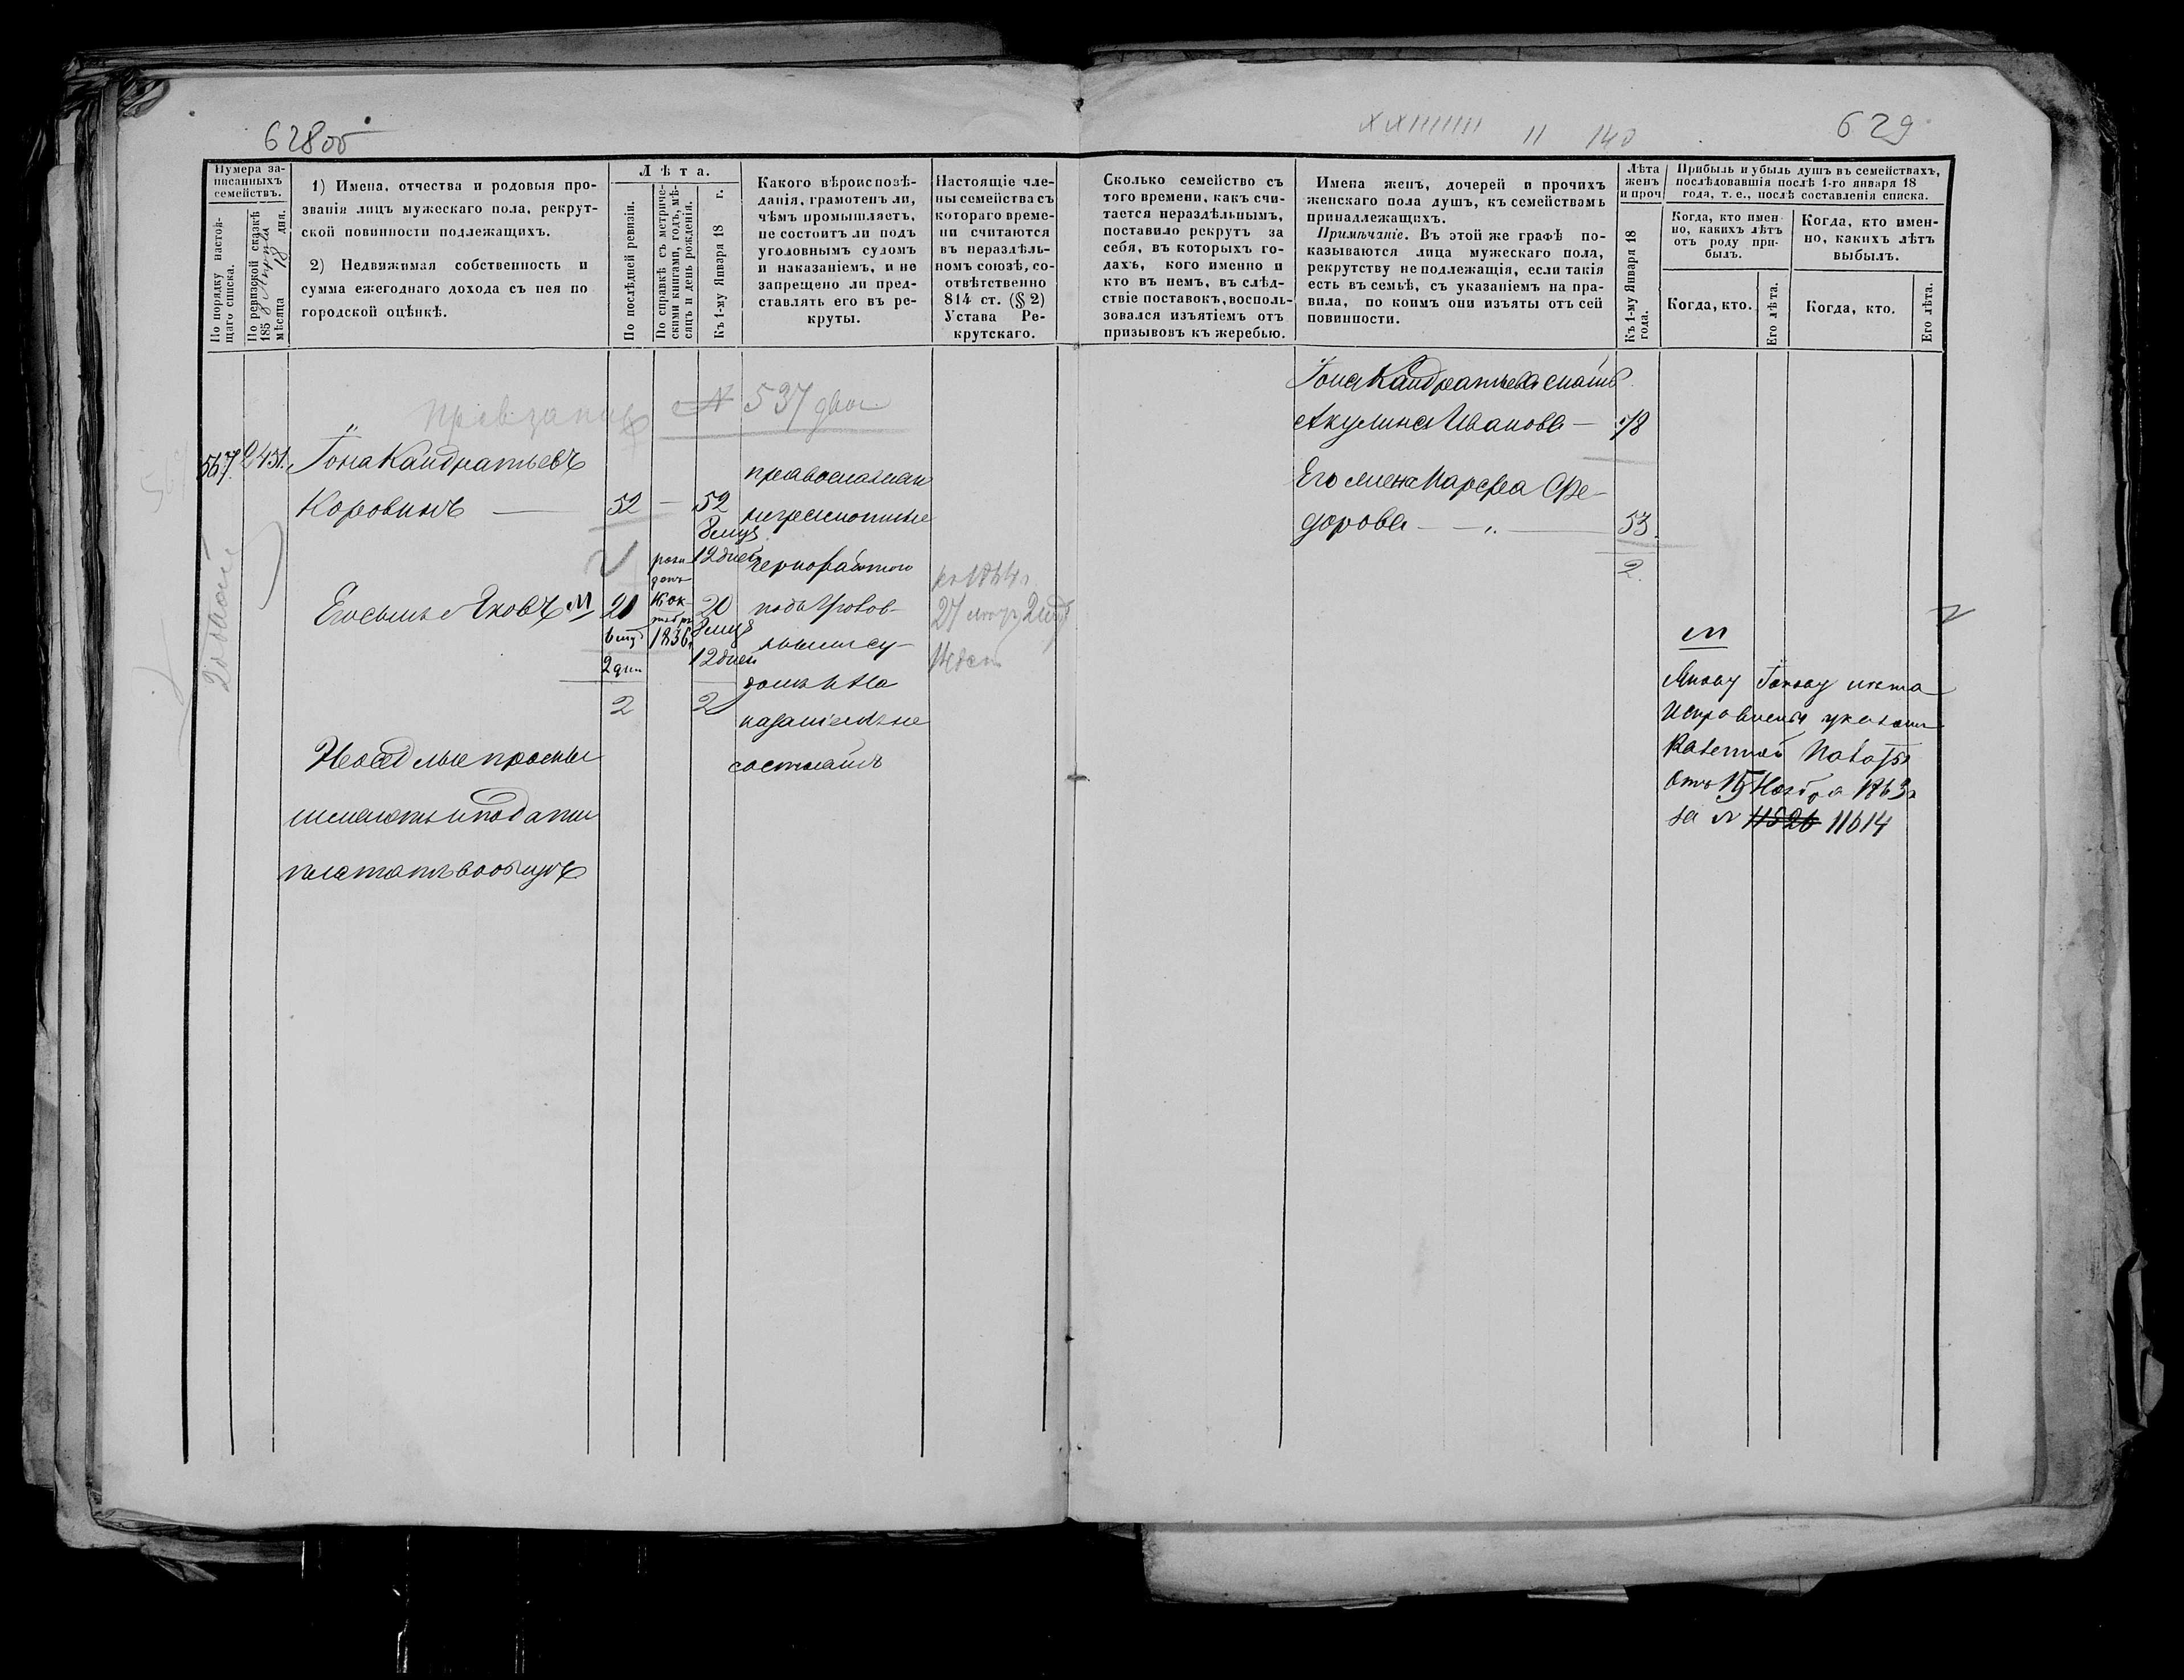 628 об
Нумера за-
писанныхъ
семействъ.
По порядку настоя-
щаго списка.
По ревизской сказкѣ
185 г. Марта
мѣсяца 18 дня.
1) Имена, отчества и родовыя про-
званія лицъ мужескаго пола, рекрут-
ской повинности подлежащихъ.
2) Недвижимая собственность и
сумма ежегоднаго дохода съ нея по
городской оцѣнкѣ.
Лѣта.
По послѣдней ревизіи.
По справкѣ съ метриче-
скими книгами, годъ, мѣ-
сяцъ и день рожденія.
Къ 1-му Января 18 г.
Какого вѣроисповѣ-
данія, грамотенъ ли,
чѣмъ промышляетъ,
не состоитъ ли подъ
уголовнымъ судомъ
и наказаніемъ, и не
запрещено ли пред-
ставлять его въ ре-
круты.
Настоящіе чле-
ны семейства съ
котораго време-
ни считаются
въ нераздѣль-
номъ союзѣ, со-
отвѣтственно
814 ст. (§ 2)
Устава Ре-
крутскаго.
№ 537
567. 2451. Іона Кандратьевъ
Коровинъ — 52 — 52
8 мцъ
12 дней
Его сынъ Яковъ М 21
6 мцъ
2 дни
рож
денъ
10 Ок-
тября
1836 г.
20
8 мцъ
12 дней
2 2
православнаго
неграмотные
чернорабочіе
подъ уголов-
нымъ су-
домъ и на
казаніемъ не
состоятъ
27 2 мцъ
Неоседлые просты
имеютъ и подати
платятъ вообще
629
11 140
Сколько семейство съ
того времени, какъ счи-
тается нераздѣльнымъ,
поставило рекрутъ за
себя, въ которыхъ го-
дахъ, кого именно и
кто въ немъ, въ слѣд-
ствіе поставокъ, восполь-
зовался изъятіемъ отъ
призывовъ къ жеребью.
Имена женъ, дочерей и прочихъ
женскаго пола душъ, къ семействамъ
принадлежащихъ.
Примѣчаніе. Въ этой же графѣ по-
казываются лица мужескаго пола,
рекрутству не подлежащія, если такія
есть въ семьѣ, съ указаніемъ на пра-
вила, по коимъ они изъяты отъ сей
повинности.
Лѣта
женъ
и проч
Къ 1-му Января 18
года.
Прибыль и убыль душъ въ семействахъ,
послѣдовавшія послѣ 1-го января 18
года, т. е., послѣ составленія списка.
Когда, кто имен
но, какихъ лѣтъ
отъ роду при-
былъ.
Когда, кто имен-
но, какихъ лѣтъ
выбылъ.
Когда, кто.
Его лѣта.
Когда, кто.
Его лѣта.
Іона Кандратьева мать
Акулина Иванова — 78
Его жена Марфа Фе-
дорова — 53.
2.
М
Якову Іонову лѣта
Исправлены указомъ
Казенной Палаты
Отъ 15 Ноября 1863 г
за № 11526 11614